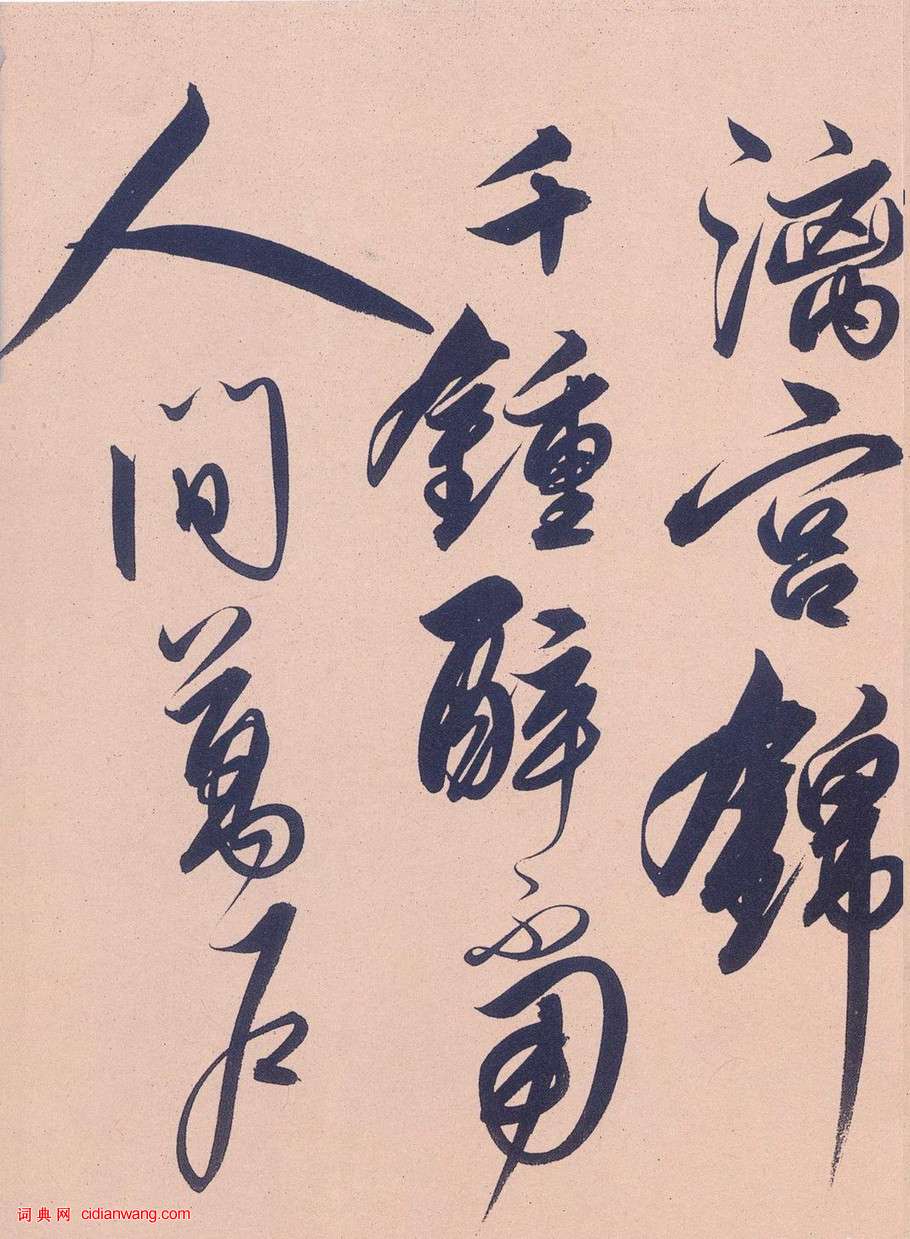 漓宮錦
千鍾醉不
人間萬户
词典网 cidianwang.com